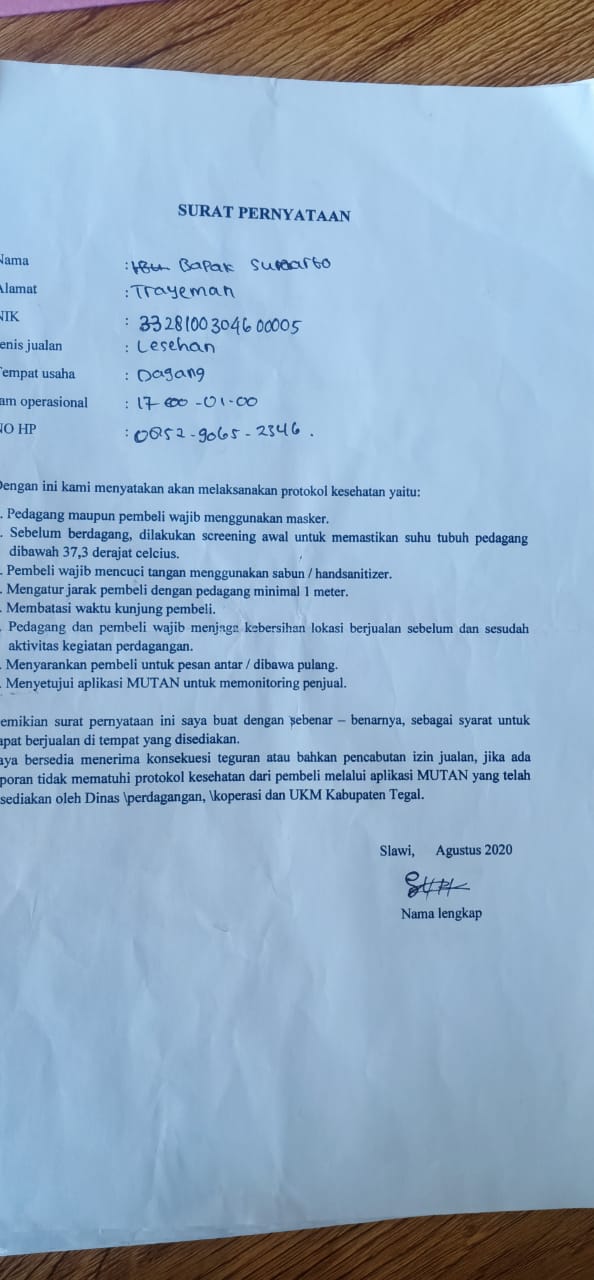 SURAT PERNYATAAN
Nama : Bapak Sunarto
Alamat : Trayeman
NIK : 3328100304600005
enis jualan : Lesehan
Tempat usaha : Dagang
am operasional : 17-00-01-00
NO HP : 0852-9065-2346.
Dengan ini kami menyatakan akan melaksanakan protokol kesehatan yaitu:
. Pedagang maupun pembeli wajib menggunakan masker.
. Sebelum berdagang, dilakukan screening awal untuk memastikan suhu tubuh pedagang
dibawah 37,3 derajat celcius.
. Pembeli wajib mencuci tangan menggunakan sabun / handsanitizer.
. Mengatur jarak pembeli dengan pedagang minimal 1 meter.
. Membatasi waktu kunjung pembeli.
. Pedagang dan pembeli wajib menjaga kebersihan lokasi berjualan sebelum dan sesudah
aktivitas kegiatan perdagangan.
. Menyarankan pembeli untuk pesan antar / dibawa pulang.
. Menyetujui aplikasi MUTAN untuk memonitoring penjual.
emikian surat pernyataan ini saya buat dengan sebenar – benarnya, sebagai syarat untuk
apat berjualan di tempat yang disediakan.
aya bersedia menerima konsekuesi teguran atau bahkan pencabutan izin jualan, jika ada
poran tidak mematuhi protokol kesehatan dari pembeli melalui aplikasi MUTAN yang telah
sediakan oleh Dinas \perdagangan, \koperasi dan UKM Kabupaten Tegal.
Slawi, Agustus 2020
Nama lengkap